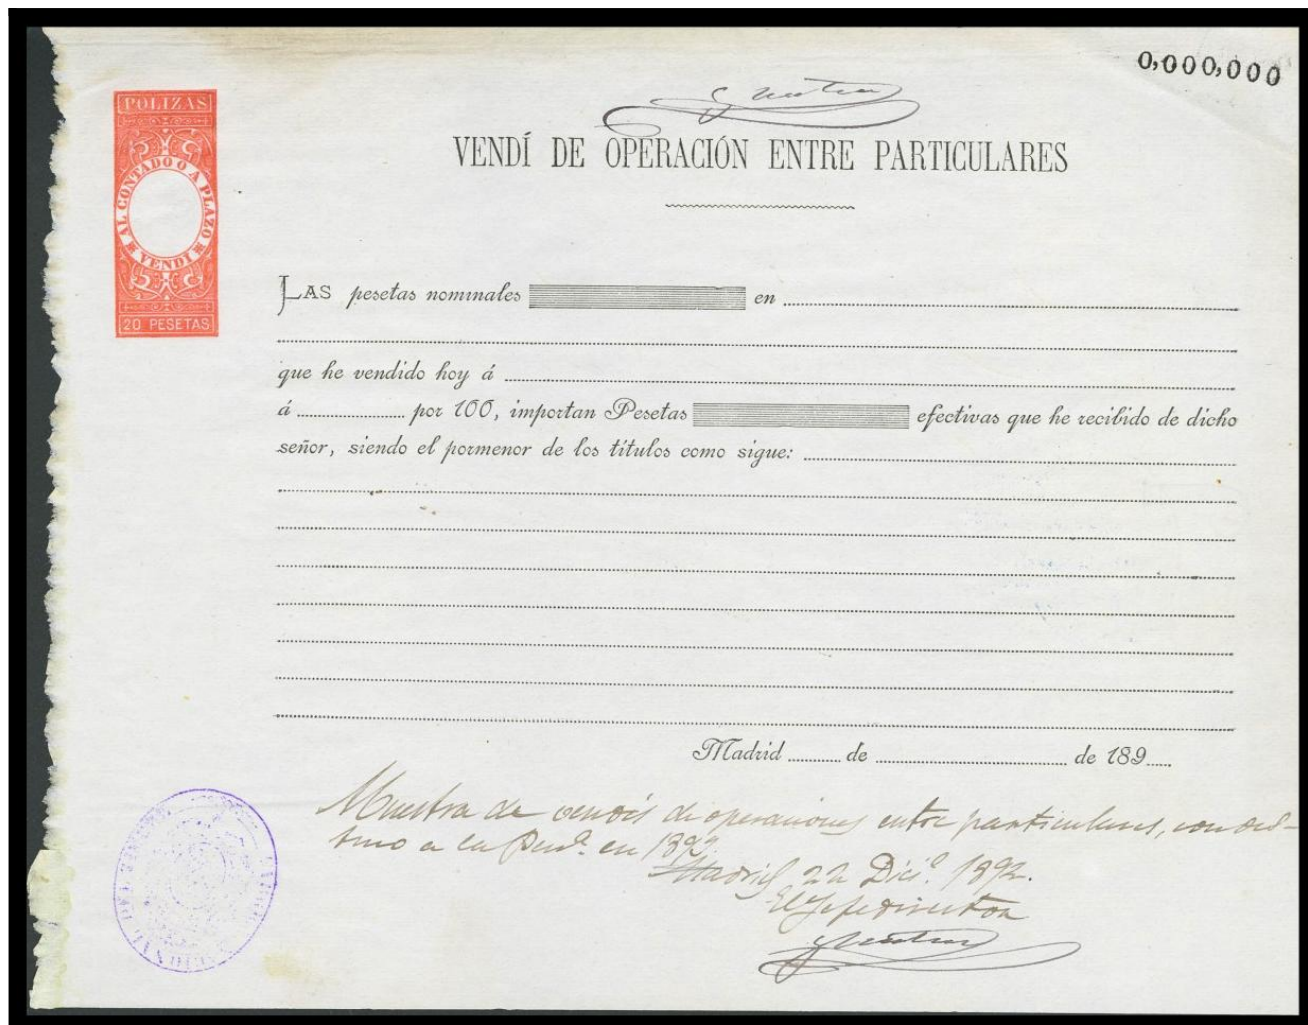 0,000,000
POLIZAS
AL CONTADO O A PLAZO
VENDÍ
20 PESETAS
VENDÍ DE OPERACIÓN ENTRE PARTICULARES
LAS pesetas nominales en
que he vendido hoy á
á por 100, importan Pesetas efectivas que he recibido de dicho
señor, siendo el pormenor de los títulos como sigue:
Madrid de de 189
Muestra de vendís de operaciones entre particulares, con des-
tino a la en
Madrid 22 Dic.e 1892.
El Jefe director